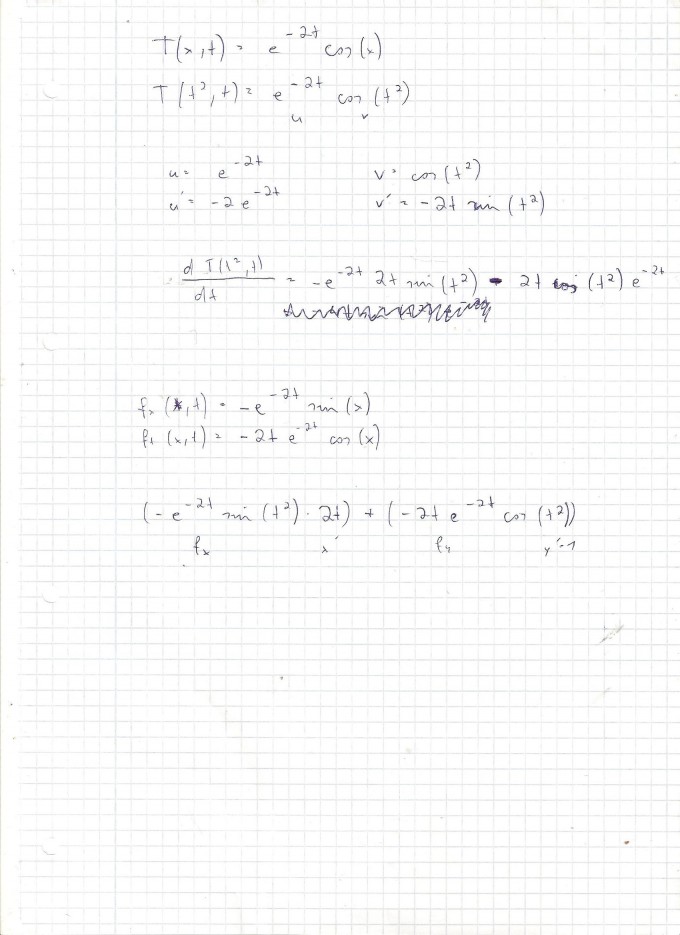 T(x,t) = e^{-2t} cos(x)
T(t²,t) = e^{-2t} cos(t²)
u v
u = e^{-2t} v = cos(t²)
u' = -2e^{-2t} v' = -2t sin(t²)
d T(t²,t) / dt = -e^{-2t} 2t sin(t²) - 2t cos(t²) e^{-2t}
fx (x,t) = -e^{-2t} sin(x)
ft (x,t) = -2t e^{-2t} cos(x)
(-e^{-2t} sin(t²) · 2t) + (-2t e^{-2t} cos(t²))
fx x' fy y'=1